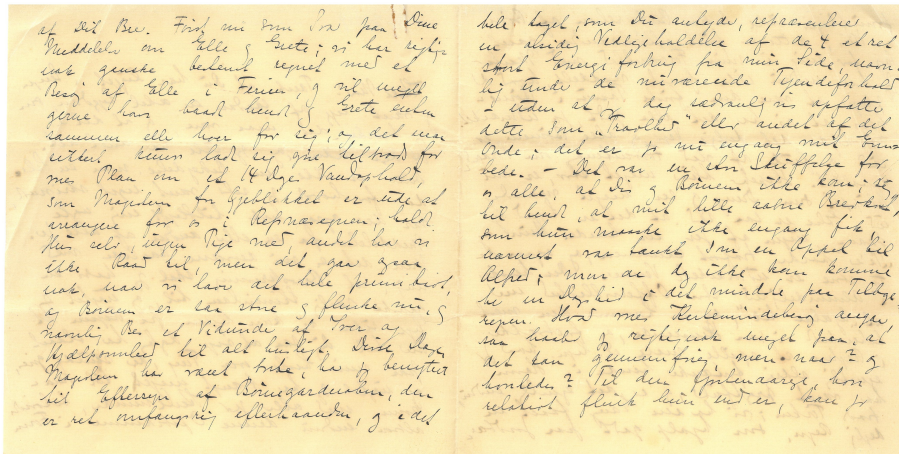 af Dit Brev. Først nu som Svar paa Dine
Meddelelser om Elle og Grete; vi har rigtig-
nok ganske bestemt regnet med et
Besøg af Elle i Ferien, og vil meget
gerne have baade hende og Grete enten
sammen eller hver for sig; og det maa
sikkert kunne lade sig gøre tiltrods for
vores Plan om et 14 Dages Landophold,
som Magisteren for Øjeblikket er ude at
arrangere for os i Rejnæsegnen; holdt
Hus selv, ingen Pige med, andet har vi
ikke Raad til, men det gaar ogsaa
nok, naar vi laver det hele primitivt,
og Børnene er saa store og flinke nu, og
navnlig Bes et Vidunder af Iver og
Hjælpsomhed til alt husligt. Disse Dage,
Magisteren har været borte, har jeg benyttet
til Eftersyn af Børnegarderoben, den
er ret omfangsrig efterhaanden, og i det
hele taget, som Du antyder, repræsenterer
en alsidig Vedligeholdelse af de 4 et ret
stort Energiforbrug fra min Side, navn-
lig under de nuværende Tyendeforhold
- uden at jeg dog sædvanligvis opfatter
dette som "Travlhed" eller andet af det
Onde; det er jo nu engang mit Em-
bede. - Det var en stor Skuffelse for
os alle, at Dis og Børnene ikke kom; sig
til hende, at mit lille aabne Brevkort,
som hun maaske ikke engang fik,
nærmest var tænkt som en Appel til
Alfred; men om de dog ikke kan komme
bare en Dagstid i det mindste paa Tilbage-
rejsen. Hvad vores Kerteminderejse angaar,
saa haaber jeg rigtignok meget paa, at
det kan gennemføres, men naar? og
hvorledes? Til den fjortenaarige, hvor
relativt flink hun end er, kan jeg